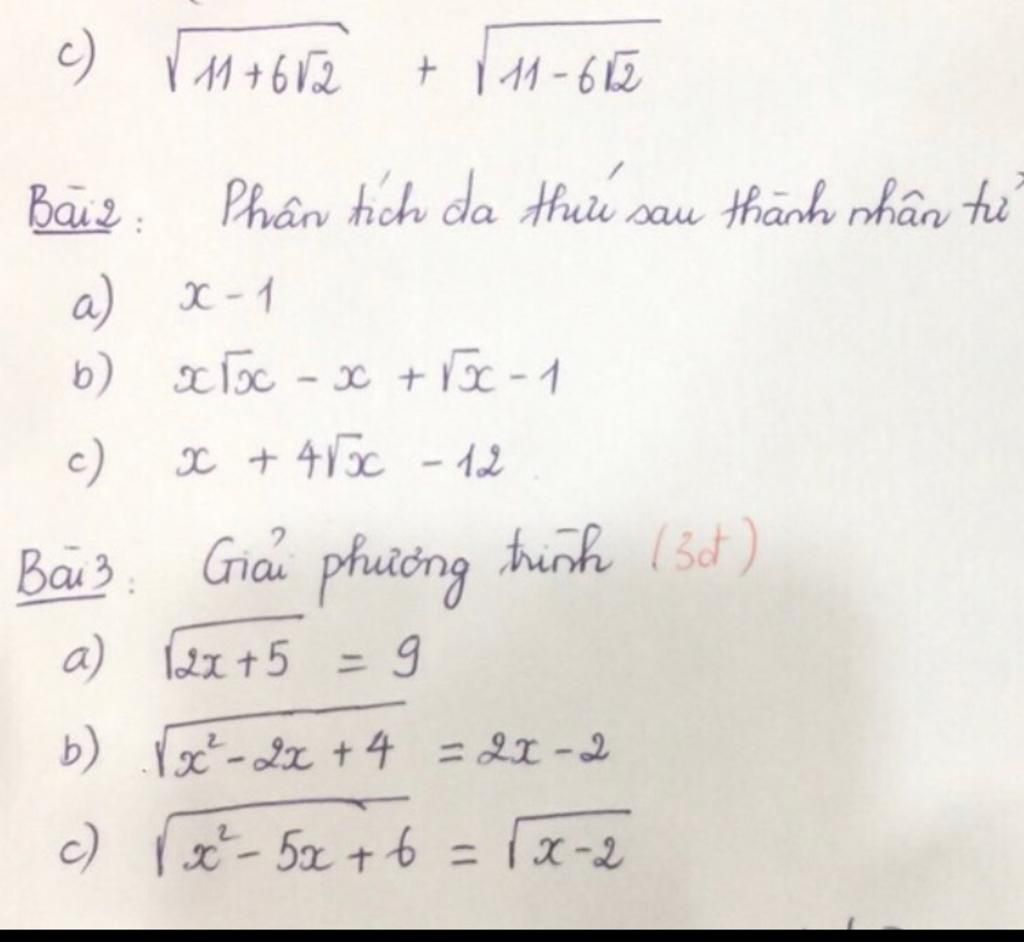 c) √(11+6√2) + √(11-6√2)
Bài 2: Phân tích đa thức sau thành nhân tử
a) x - 1
b) x√x - x + √x - 1
c) x + 4√x - 12
Bài 3: Giải phương trình (3đ)
a) √(2x+5) = 9
b) √(x² - 2x + 4) = 2x - 2
c) √(x² - 5x + 6) = √(x-2)